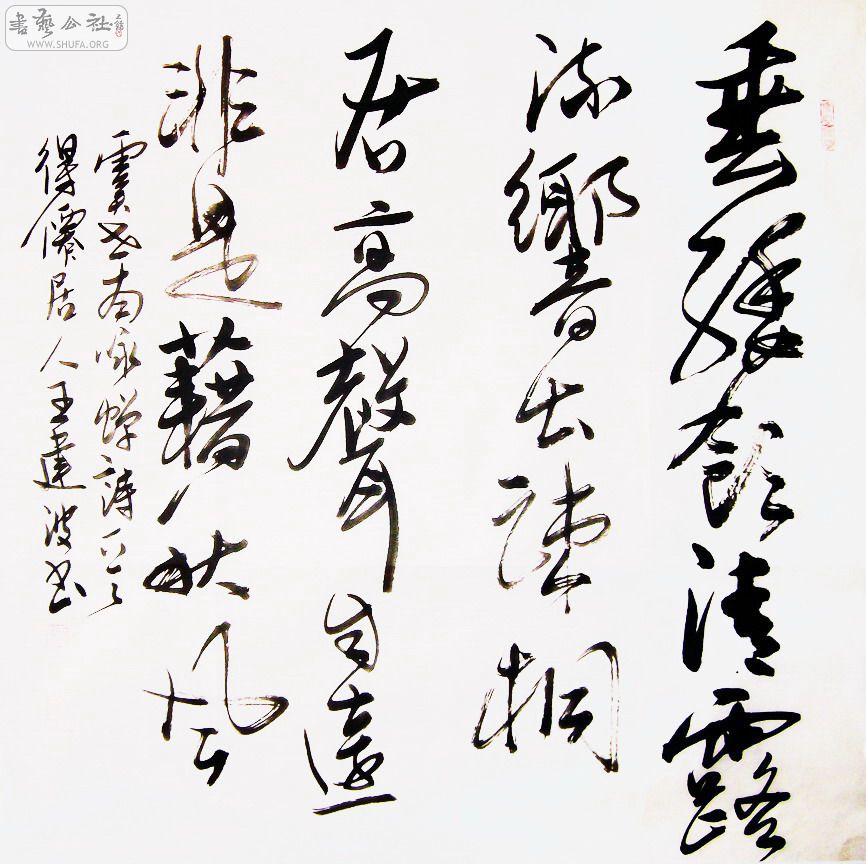 垂緌飲清露
流響出疎桐
居高聲自遠
非是藉秋風
虞世南咏蟬詩一首
得僊居人王建波书
書藝公社
WWW.SHUFA.ORG